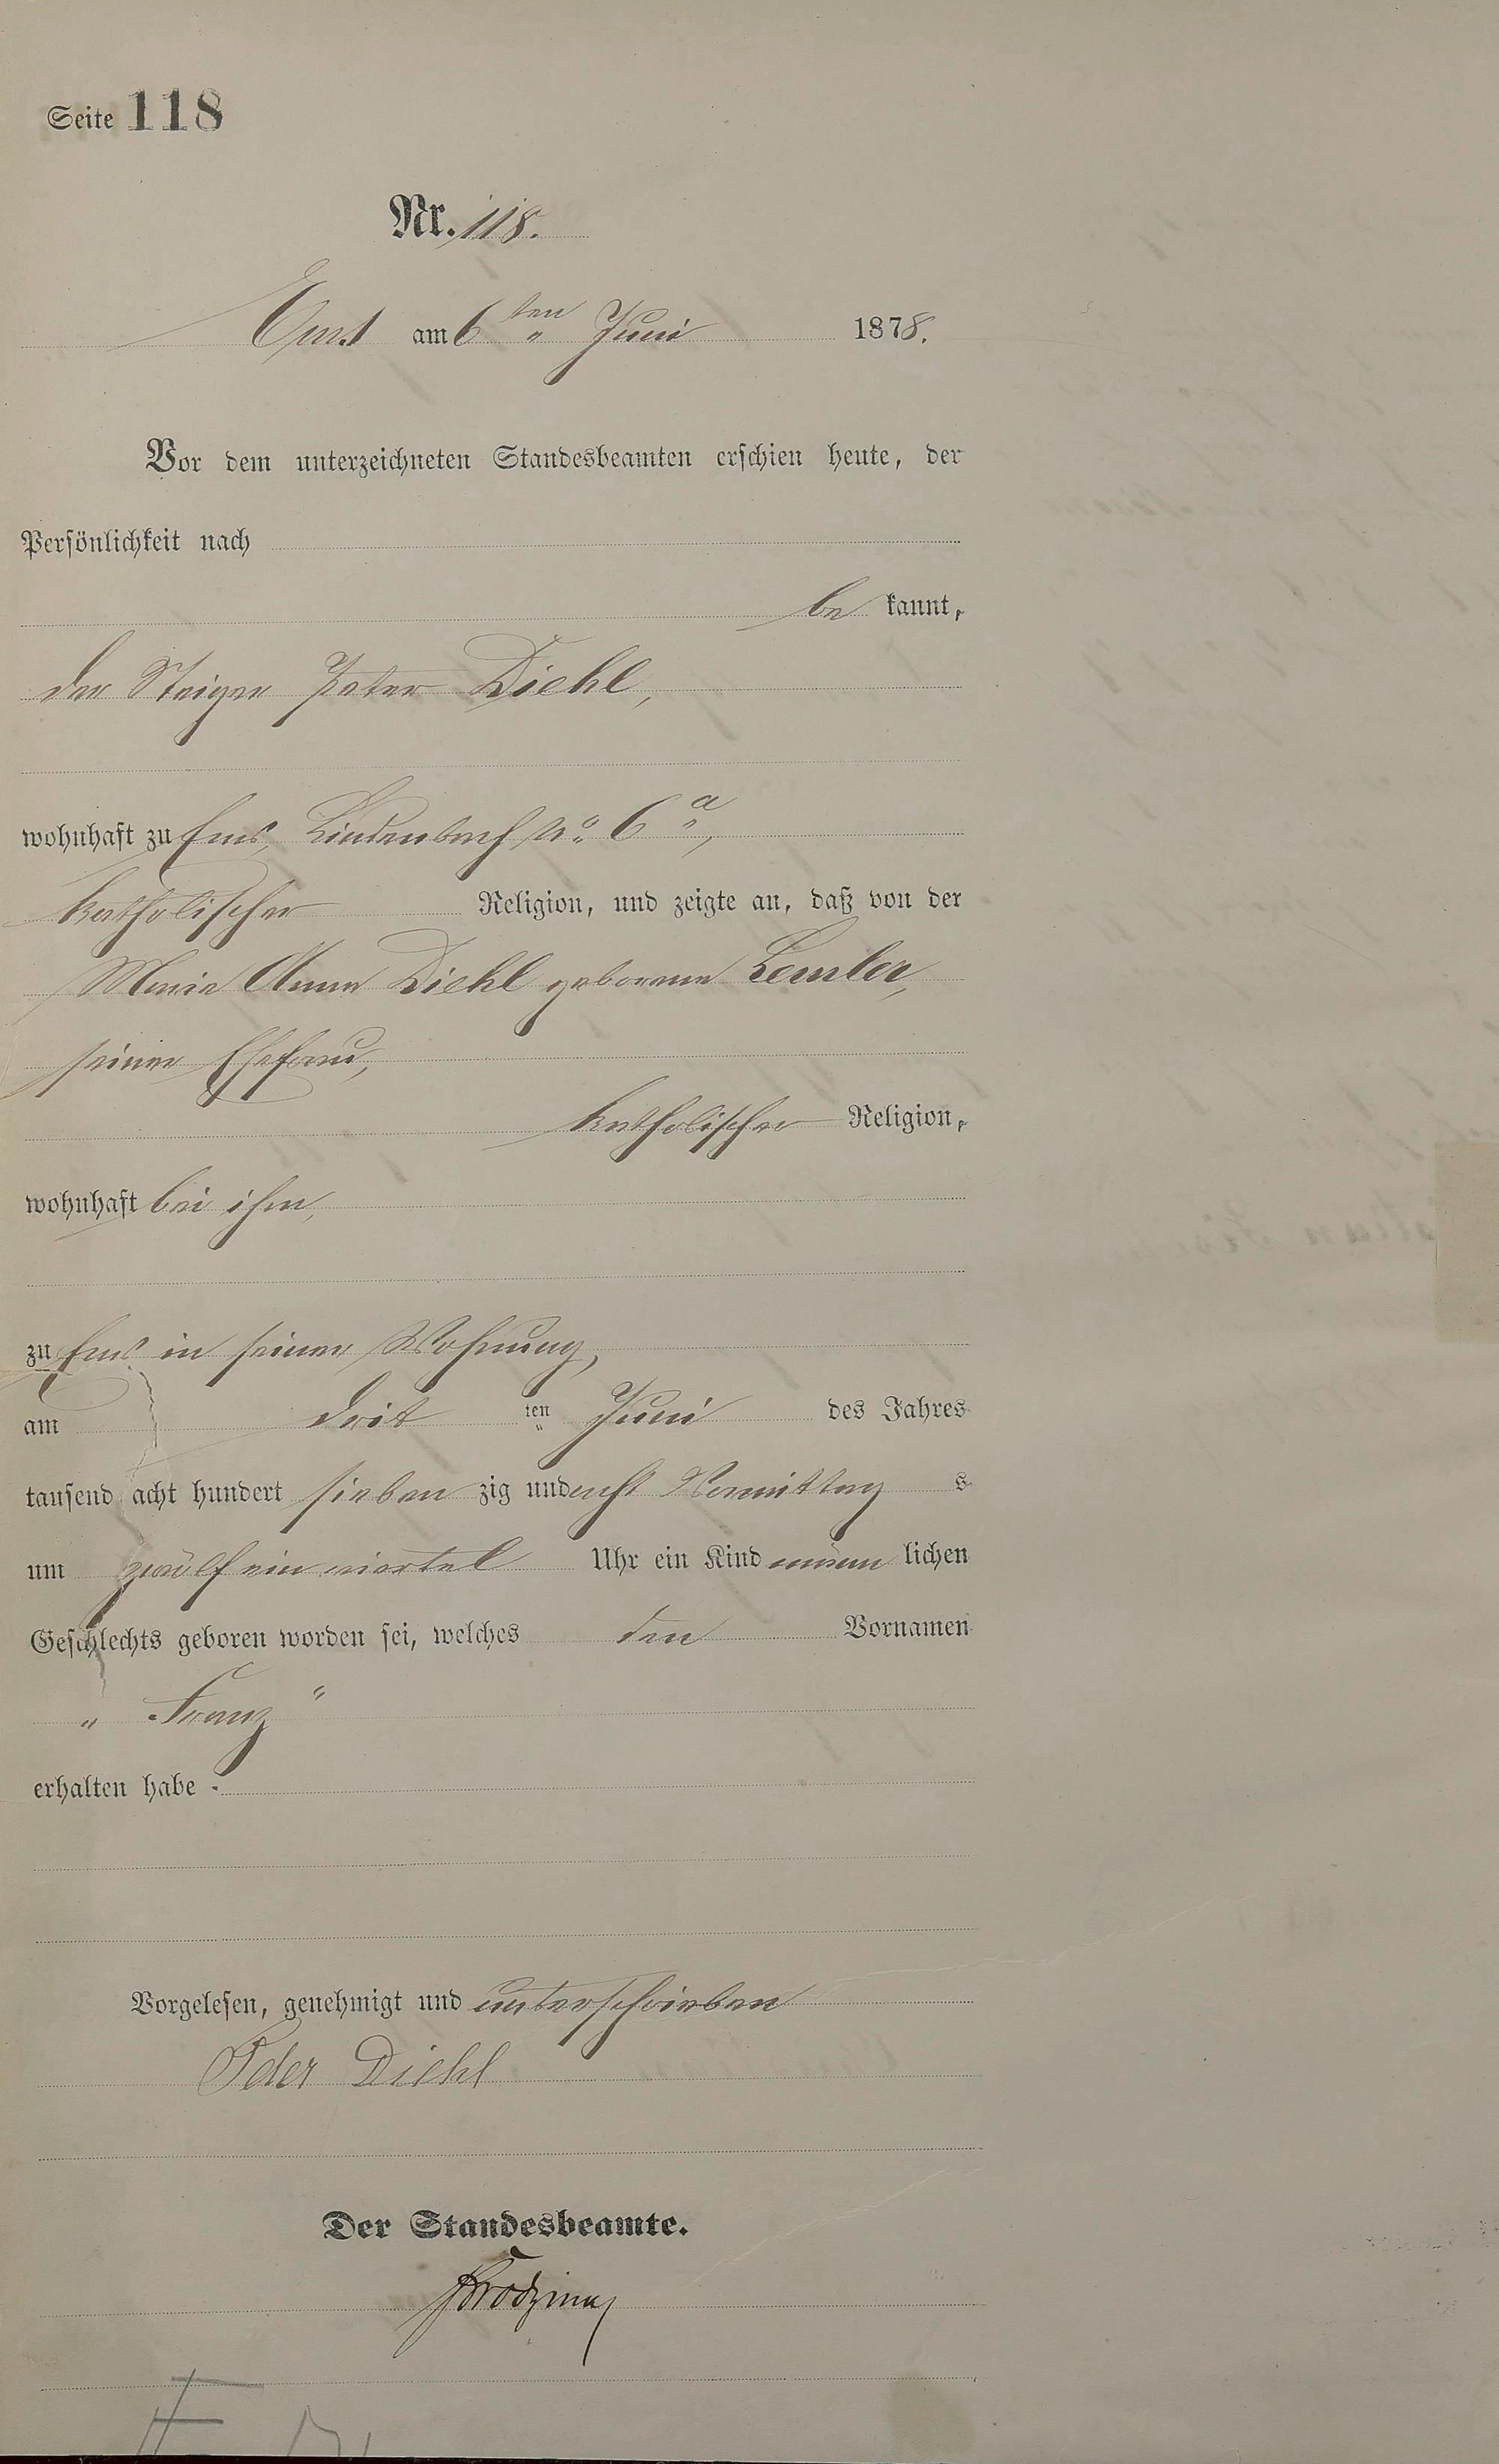 Seite 118
Nr. 118.
Ems am 6ten Juni 1878.
Vor dem unterzeichneten Standesbeamten erschien heute, der
Persönlichkeit nach
be kannt,
der Steiger Peter Diehl,
wohnhaft zu Ems, Lindenbach No. 6a,
katholischer Religion, und zeigte an, daß von der
Maria Anna Diehl geborene Lemler,
seiner Ehefrau,
katholischer Religion,
wohnhaft bei ihm,
zu Ems in seiner Wohnung,
am dritten Juni des Jahres
tausend acht hundert sieben zig und acht Vormittag s
um zwölf ein viertel Uhr ein Kind männ lichen
Geschlechts geboren worden sei, welches den Vornamen
„Franz“
erhalten habe.
Vorgelesen, genehmigt und unterschrieben
Peter Diehl
Der Standesbeamte.